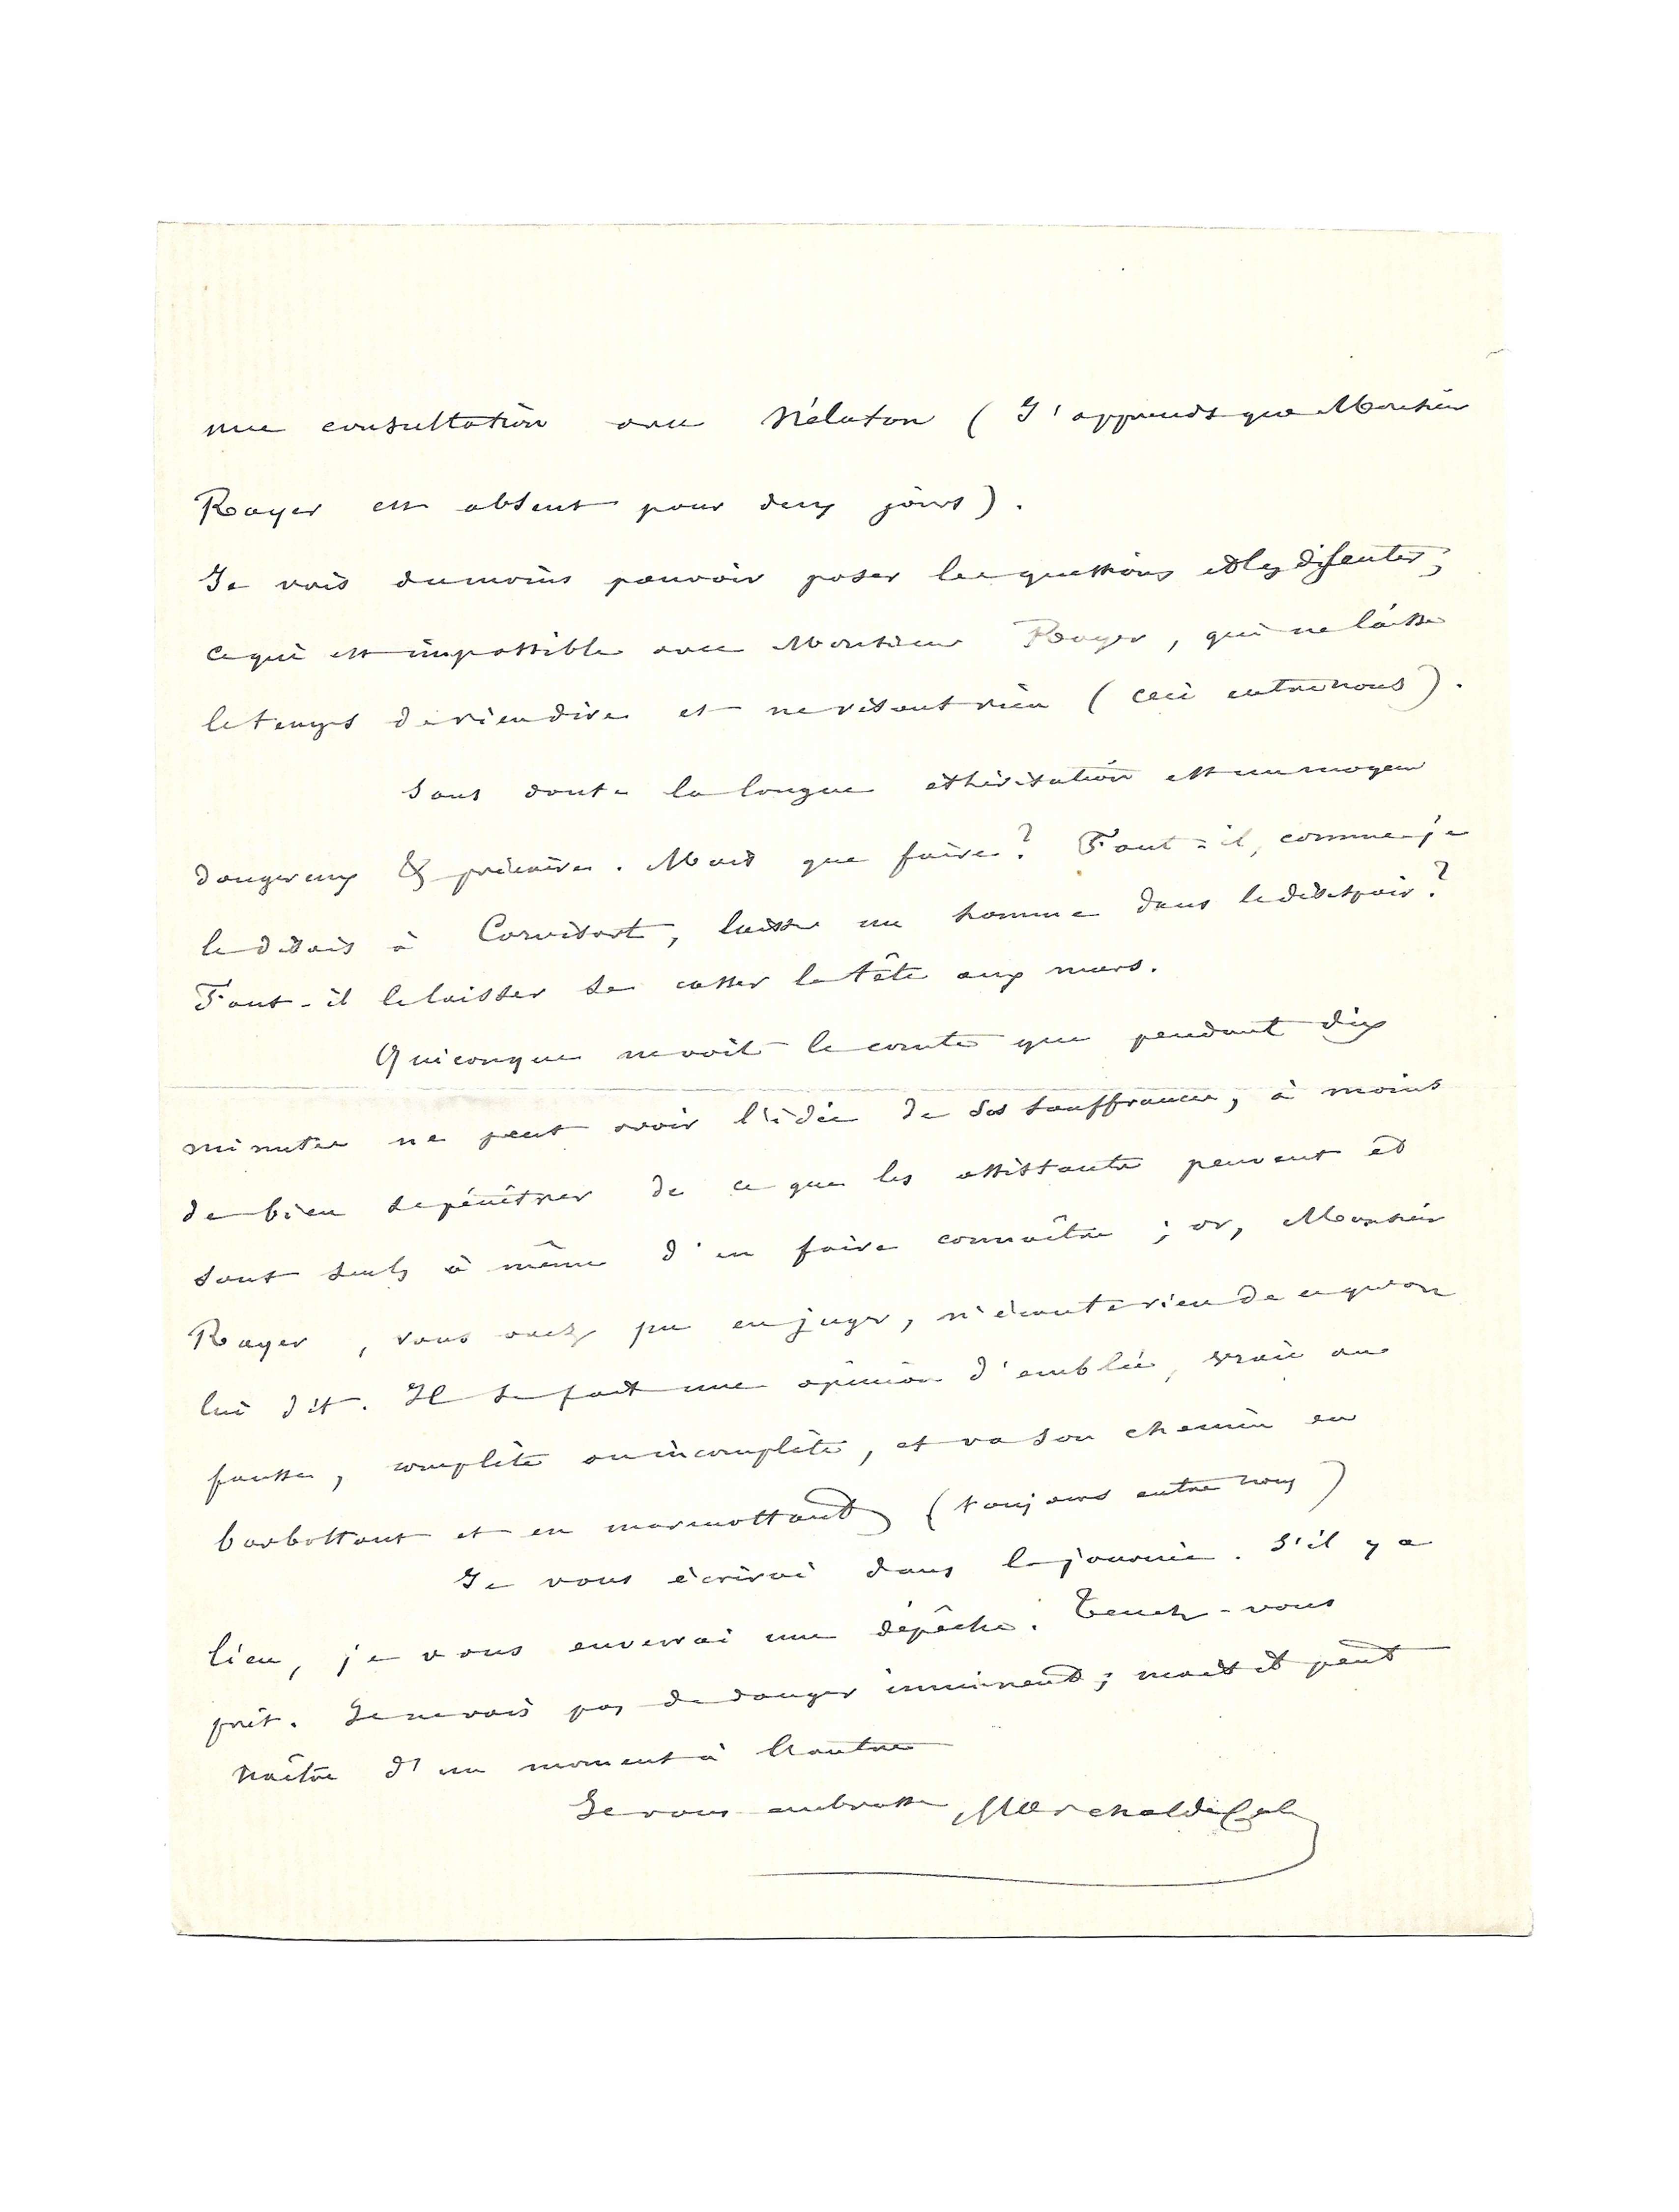 une consultation avec Nélaton (J'apprends que Monsieur
Rayer est absent pour deux jours).
Je vais du moins pouvoir poser les questions et les discuter,
ce qui est impossible avec Monsieur Rayer, qui ne laisse
le temps de rien dire et ne résout rien (ceci entre nous).
Sans doute la longue éthérisation est un moyen
dangereux & précaire. Mais que faire? Faut-il, comme je
le disais à Corvisart, laisser un homme dans le désespoir?
Faut-il le laisser se casser la tête aux murs.
Quiconque ne voit le comte que pendant dix
minutes ne peut avoir l'idée de ses souffrances, à moins
de bien se pénétrer de ce que les assistants peuvent et
sont seuls à même d'en faire connaître ; or, Monsieur
Rayer, vous avez pu en juger, n'écoute rien de ce qu'on
lui dit. Il se fait une opinion d'emblée, vraie ou
fausse, complète ou incomplète, et va son chemin en
barbottant et en marmottant (toujours entre nous)
Je vous écrirai dans la journée. S'il y a
lieu, je vous enverrai une dépêche. Tenez-vous
prêt. Je ne vois pas de danger imminent; mais il peut
naître d'un moment à l'autre
Je vous embrasse Marchal de Calvi